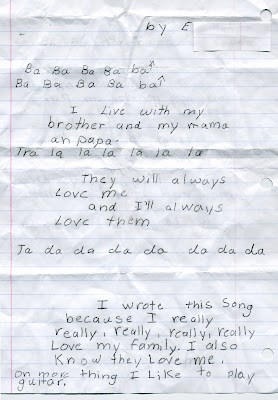 by E
Ba Ba Ba Ba ba↗
Ba Ba Ba Ba ba↗
I Live with my
brother and my mama
an papa.
Tra la la la la la la
They will always
Love me
and I'll always
Love them
Ja da da da da da da da
I wrote this Song
because I really
really, really, really, really
Love my family. I also
Know they Love me.
on more thing I Like to play
guitar.